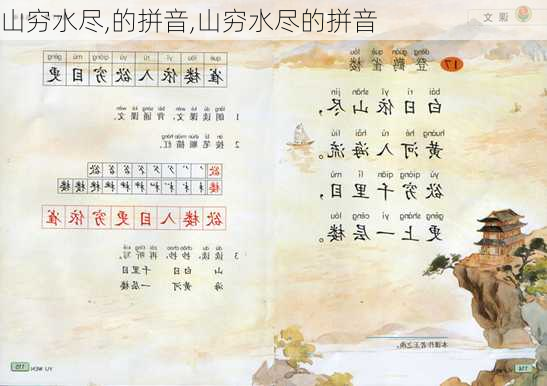 山穷水尽,的拼音,山穷水尽的拼音
课文
dēng guàn què lóu
17 登鹳雀楼
bái rì yī shān jìn
白日依山尽，
huáng hé rù hǎi liú
黄河入海流。
yù qióng qiān lǐ mù
欲穷千里目，
gèng shàng yì céng lóu
更上一层楼。
本课作者王之涣。
114
更目穷欲入依楼雀
1 朗读课文，背诵课文。
2 按笔顺描红。
欲
楼
雀依穷更目入楼欲
3 读读，抄抄，再听写。
山 白日 千里目
海 黄河 一层楼
YU WEN
115